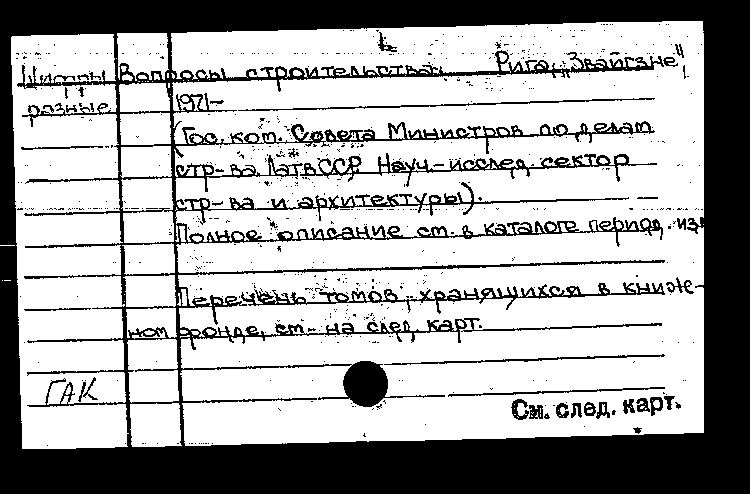 Шифры Вопросы строительства. Рига, „Звайгзне",
разные 1971-
(Гос. ком. Совета Министров по делам
стр-ва ЛатвССР. Науч.-исслед. сектор
стр-ва и архитектуры).
Полное описание см. в каталоге период. изд
Перечень томов, хранящихся в книж-
ном фонде, см. на след. карт.
ГАК
См. след. карт.